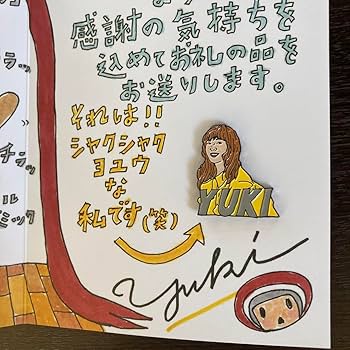 感謝の気持ちを
込めてお礼の品を
お送りします。
それは!!
シャクシャク
ヨユウ
な
私です(笑)
YUKI
yuki
チラッ
ル
ミック